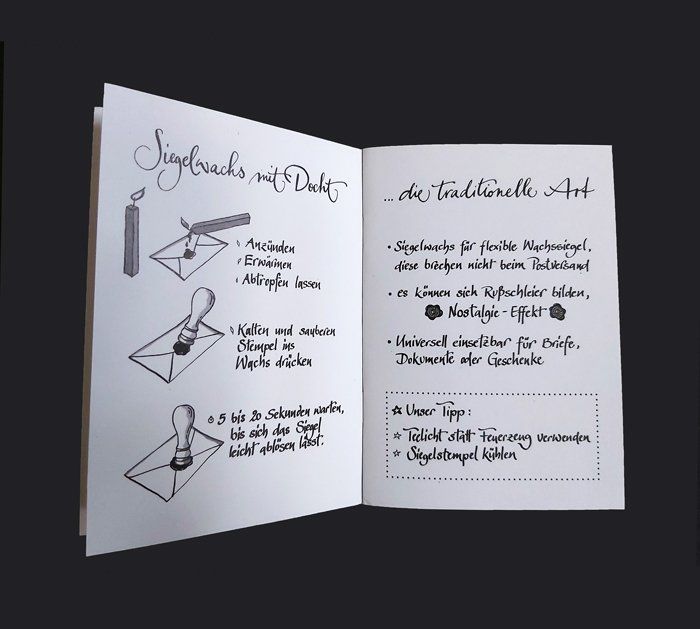 Siegelwachs mit Docht
Anzünden
Erwärmen
Abtropfen lassen
Kalten und sauberen
Stempel ins
Wachs drücken
5 bis 20 Sekunden warten,
bis sich das Siegel
leicht ablösen lässt.
... die traditionelle Art
• Siegelwachs für flexible Wachssiegel,
diese brechen nicht beim Postversand
• es können sich Rußschleier bilden,
Nostalgie - Effekt
• Universell einsetzbar für Briefe,
Dokumente oder Geschenke
☆ Unser Tipp:
☆ Teelicht statt Feuerzeug verwenden
☆ Siegelstempel kühlen